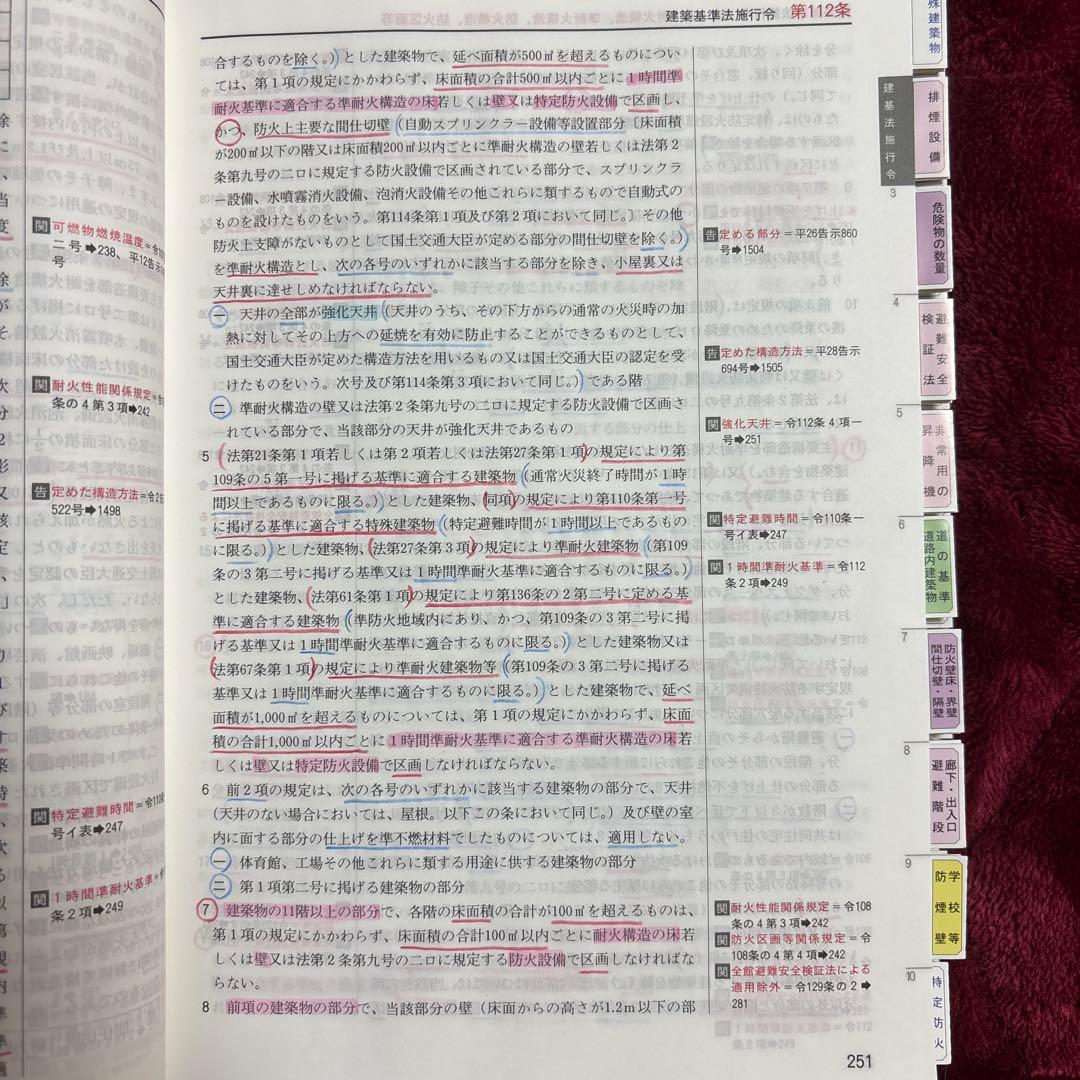 建築基準法施行令 第112条
合するものを除く。）とした建築物で、延べ面積が500㎡を超えるものについ
ては、第1項の規定にかかわらず、床面積の合計500㎡以内ごとに1時間準
耐火基準に適合する準耐火構造の床若しくは壁又は特定防火設備で区画し、
かつ、防火上主要な間仕切壁（自動スプリンクラー設備等設置部分〔床面積
が200㎡以下の階又は床面積200㎡以内ごとに準耐火構造の壁若しくは法第2
条第九号の二ロに規定する防火設備で区画されている部分で、スプリンクラ
ー設備、水噴霧消火設備、泡消火設備その他これらに類するもので自動式の
ものを設けたものをいう。第114条第1項及び第2項において同じ。〕その他
防火上支障がないものとして国土交通大臣が定める部分の間仕切壁を除く。）
を準耐火構造とし、次の各号のいずれかに該当する部分を除き、小屋裏又は
天井裏に達せしめなければならない。
一 天井の全部が強化天井（天井のうち、その下方からの通常の火災時の加
熱に対してその上方への延焼を有効に防止することができるものとして、
国土交通大臣が定めた構造方法を用いるもの又は国土交通大臣の認定を受
けたものをいう。次号及び第114条第3項において同じ。）である階
二 準耐火構造の壁又は法第2条第九号の二ロに規定する防火設備で区画さ
れている部分で、当該部分の天井が強化天井であるもの
5 法第21条第1項若しくは第2項若しくは法第27条第1項の規定により第
109条の5第一号に掲げる基準に適合する建築物（通常火災終了時間が1時
間以上であるものに限る。）とした建築物、同項の規定により第110条第一号
に掲げる基準に適合する特殊建築物（特定避難時間が1時間以上であるもの
に限る。）とした建築物、法第27条第3項の規定により準耐火建築物（第109
条の3第二号に掲げる基準又は1時間準耐火基準に適合するものに限る。）
とした建築物、法第61条第1項の規定により第136条の2第二号に定める基
準に適合する建築物（準防火地域内にあり、かつ、第109条の3第二号に掲
げる基準又は1時間準耐火基準に適合するものに限る。）とした建築物又は
法第67条第1項の規定により準耐火建築物等（第109条の3第二号に掲げる
基準又は1時間準耐火基準に適合するものに限る。）とした建築物で、延べ
面積が1,000㎡を超えるものについては、第1項の規定にかかわらず、床面
積の合計1,000㎡以内ごとに1時間準耐火基準に適合する準耐火構造の床若
しくは壁又は特定防火設備で区画しなければならない。
6 前2項の規定は、次の各号のいずれかに該当する建築物の部分で、天井
（天井のない場合においては、屋根。以下この条において同じ。）及び壁の室
内に面する部分の仕上げを準不燃材料でしたものについては、適用しない。
一 体育館、工場その他これらに類する用途に供する建築物の部分
二 第1項第二号に掲げる建築物の部分
7 建築物の11階以上の部分で、各階の床面積の合計が100㎡を超えるものは、
第1項の規定にかかわらず、床面積の合計100㎡以内ごとに耐火構造の床若
しくは壁又は法第2条第九号の二ロに規定する防火設備で区画しなければな
らない。
8 前項の建築物の部分で、当該部分の壁（床面からの高さが1.2m以下の部
告 定める部分＝平26告示860
号➡1504
告 定めた構造方法＝平28告示
694号➡1505
関 強化天井＝令112条4項一
号➡251
関 特定避難時間＝令110条一
号イ表➡247
関 1時間準耐火基準＝令112
条2項➡249
関 耐火性能関係規定＝令108
条の4第3項➡242
関 防火区画等関係規定＝令
108条の4第4項➡242
関 全館避難安全検証法による
適用除外＝令129条の2➡
281
251
関 可燃物燃焼温度＝令10
二号➡238、平12告示
号
関 耐火性能関係規定＝令
条の4第3項➡242
告 定めた構造方法＝令2告
522号➡1498
関 特定避難時間＝令110
号イ表➡247
関 1時間準耐火基準＝令
条2項➡249
殊建築物
建基法施行令
排煙設備
3
危険物の数量
4
避難安全
検証法
5
非常用の
昇降機
6
道の基準
道路内建築物
7
防火壁床・界壁
間仕切壁・隔壁
8
廊下・出入口
避難階段
9
学校等
防煙壁
10
特定防火